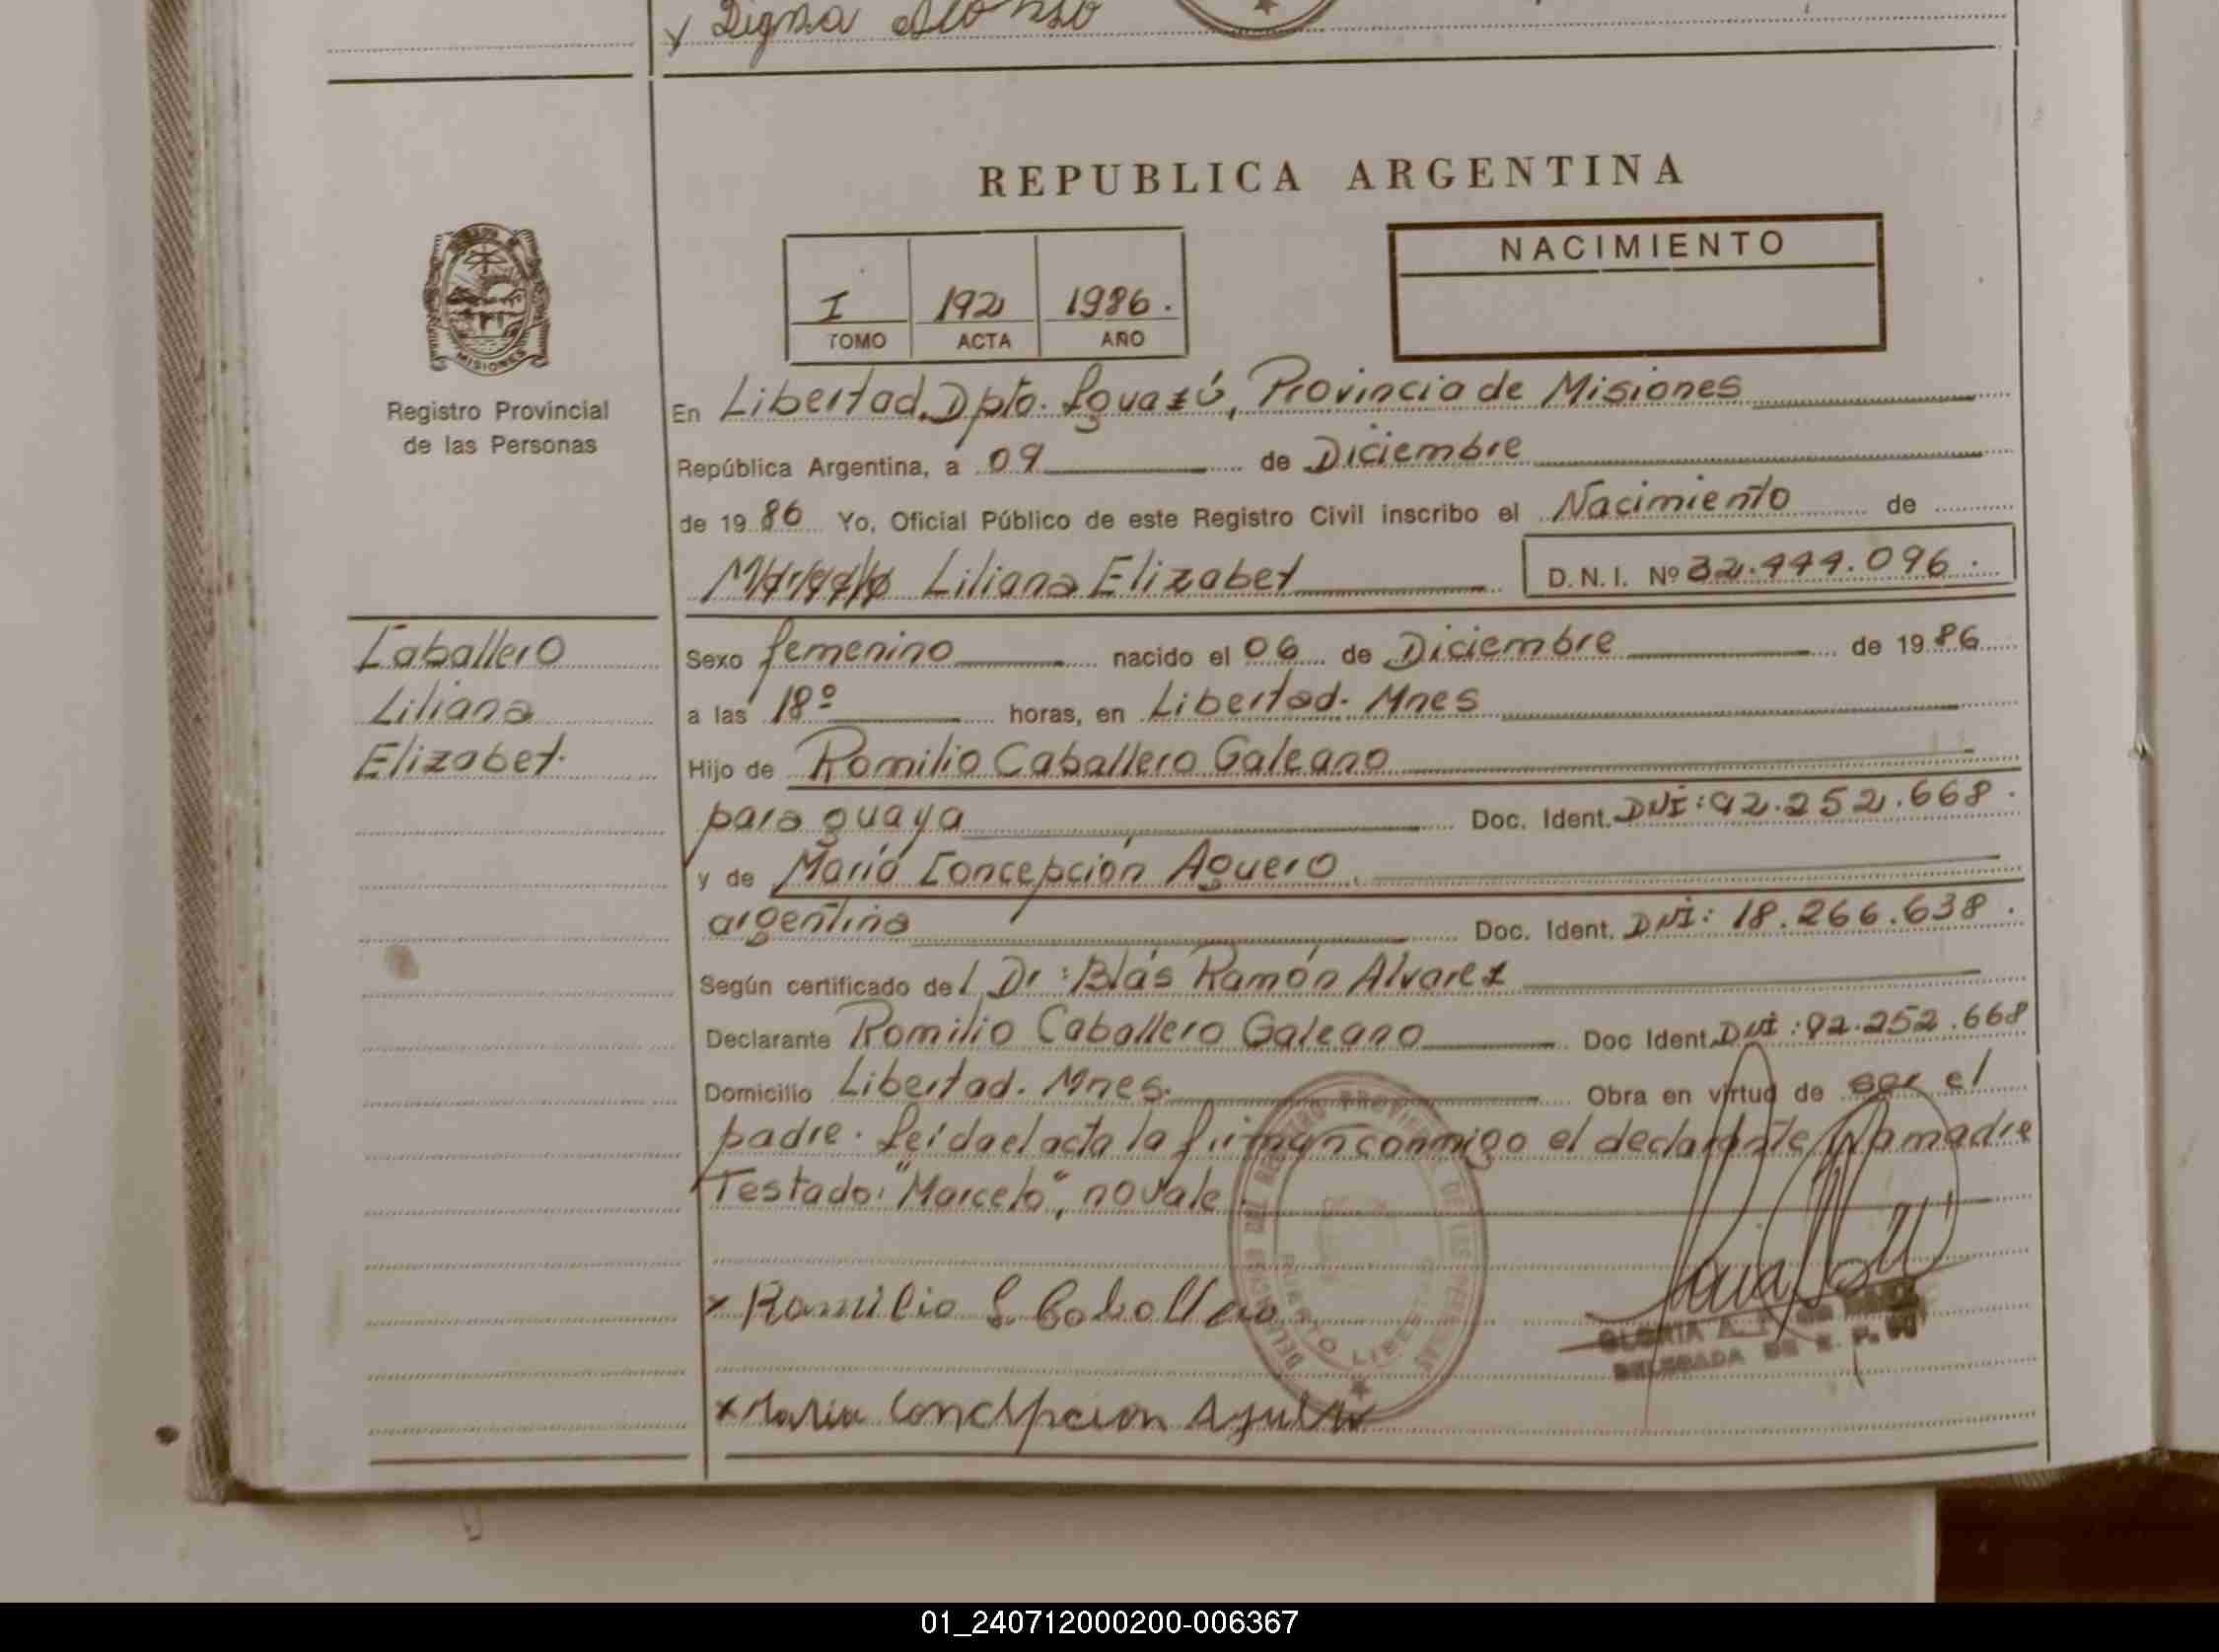 x Digna Alonso
REPUBLICA ARGENTINA
NACIMIENTO
I 192 1986.
TOMO ACTA AÑO
MISIONES
Registro Provincial
de las Personas
En Libertad, Dpto. Iguazú, Provincia de Misiones
República Argentina, a 09 de Diciembre
de 1986 Yo, Oficial Público de este Registro Civil inscribo el Nacimiento de
Marcelo Liliana Elizabet D.N.I. Nº 32.444.096.
Caballero
Liliana
Elizabet.
Sexo femenino nacido el 06 de Diciembre de 1986
a las 18º horas, en Libertad. Mnes
Hijo de Romilio Caballero Galeano
paraguaya Doc. Ident. DNI: 92.252.668.
y de María Concepción Aguero.
argentina Doc. Ident. DNI: 18.266.638.
Según certificado del Dr: Blás Ramón Alvarez
Declarante Romilio Caballero Galeano Doc Ident. DNI: 92.252.668
Domicilio Libertad. Mnes. Obra en virtud de ser el
padre. Leída el acta la firman conmigo el declarante y la madre
Testado: "Marcelo", no vale.
x Romilio G. Caballero
x Maria Concepcion Aguero
GLORIA A.
DELEGADA DE R. P.
PUERTO LIBERTAD
01_240712000200-006367